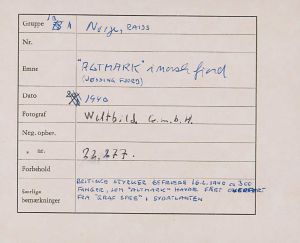 Gruppe A Norge, RAISS
Nr.
Emne "ALTMARK" i norsk fjord
(JØSSING FJORD)
Dato 1940
Fotograf Weltbild G.m.b.H.
Neg. opbev.
" nr. 22,277.
Forbehold
BRITISKE STYRKER BEFRIEDE 16.2.1940 ca 300
Særlige FANGER, SOM "ALTMARK" HAVDE FÅET OVERFØRT
bemærkninger FRA "GRAF SPEE" I SYDATLANTEN